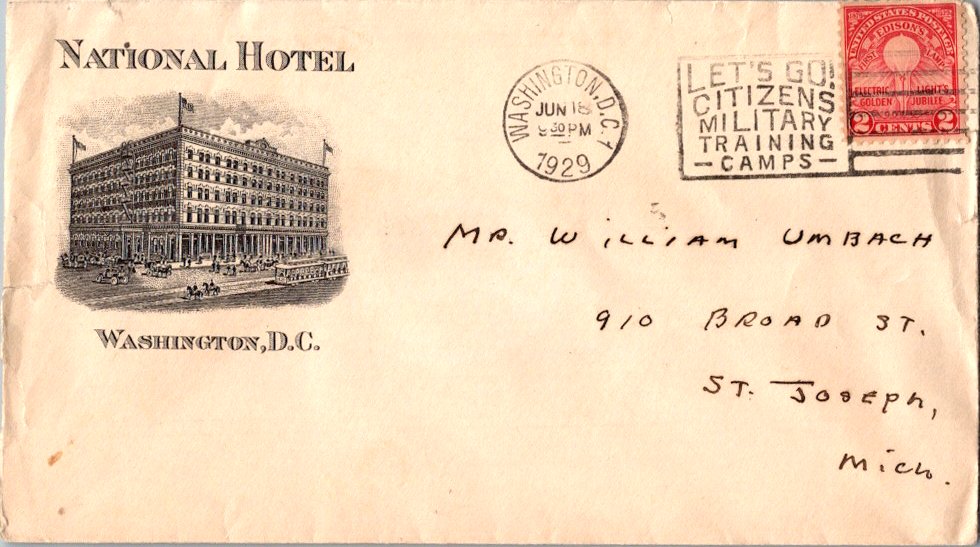 NATIONAL HOTEL
WASHINGTON, D.C.
WASHINGTON, D.C. 1
JUN 18
9 30 PM
1929
LET'S GO!
CITIZENS
MILITARY
TRAINING
- CAMPS -
UNITED STATES POSTAGE
EDISON'S
FIRST LAMP
ELECTRIC LIGHT'S
GOLDEN JUBILEE
2 CENTS 2
MR. WILLIAM UMBACH
910 BROAD ST.
ST. JOSEPH,
MICH.